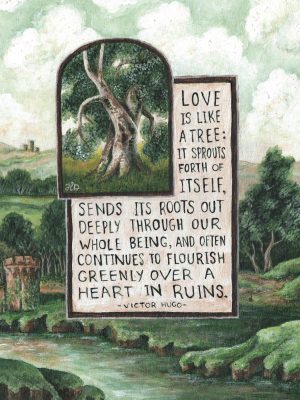 LOVE
IS LIKE
A TREE:
IT SPROUTS
FORTH OF
ITSELF,
SENDS ITS ROOTS OUT
DEEPLY THROUGH OUR
WHOLE BEING, AND OFTEN
CONTINUES TO FLOURISH
GREENLY OVER A
HEART IN RUINS.
-VICTOR HUGO-